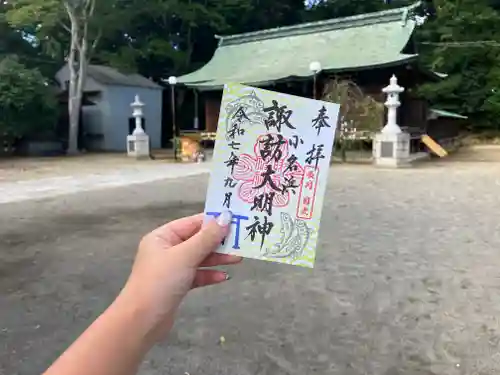 奉拝
小名浜
諏訪大明神
令和七年九月